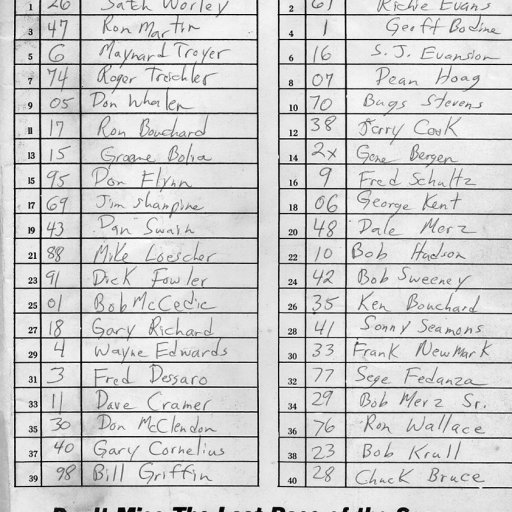 1 26 Satch Worley 2 61 Richie Evans
3 47 Ron Martin 4 1 Geoff Bodine
5 6 Maynard Troyer 6 16 S.J. Evanston
7 74 Roger Treichler 8 07 Dean Hoag
9 05 Don Whalen 10 70 Bugs Stevens
11 17 Ron Bouchard 12 38 Jerry Cook
13 15 Greame Bolia 14 2x Gene Bergen
15 95 Don Flynn 16 9 Fred Schultz
17 69 Jim Shampine 18 06 George Kent
19 43 Dan Swain 20 48 Dale Merz
21 88 Mike Loescher 22 10 Bob Hudson
23 91 Dick Fowler 24 42 Bob Sweeney
25 01 Bob McCedic 26 35 Ken Bouchard
27 18 Gary Richard 28 41 Sonny Seamons
29 4 Wayne Edwards 30 33 Frank Newmark
31 3 Fred Dessaro 32 77 Sege Fedanza
33 11 Dave Cramer 34 29 Bob Merz Sr.
35 30 Don McClendon 36 76 Ron Wallace
37 40 Gary Cornelius 38 23 Bob Krull
39 98 Bill Griffin 40 28 Chuck Bruce
Don't Miss The Last Race of the